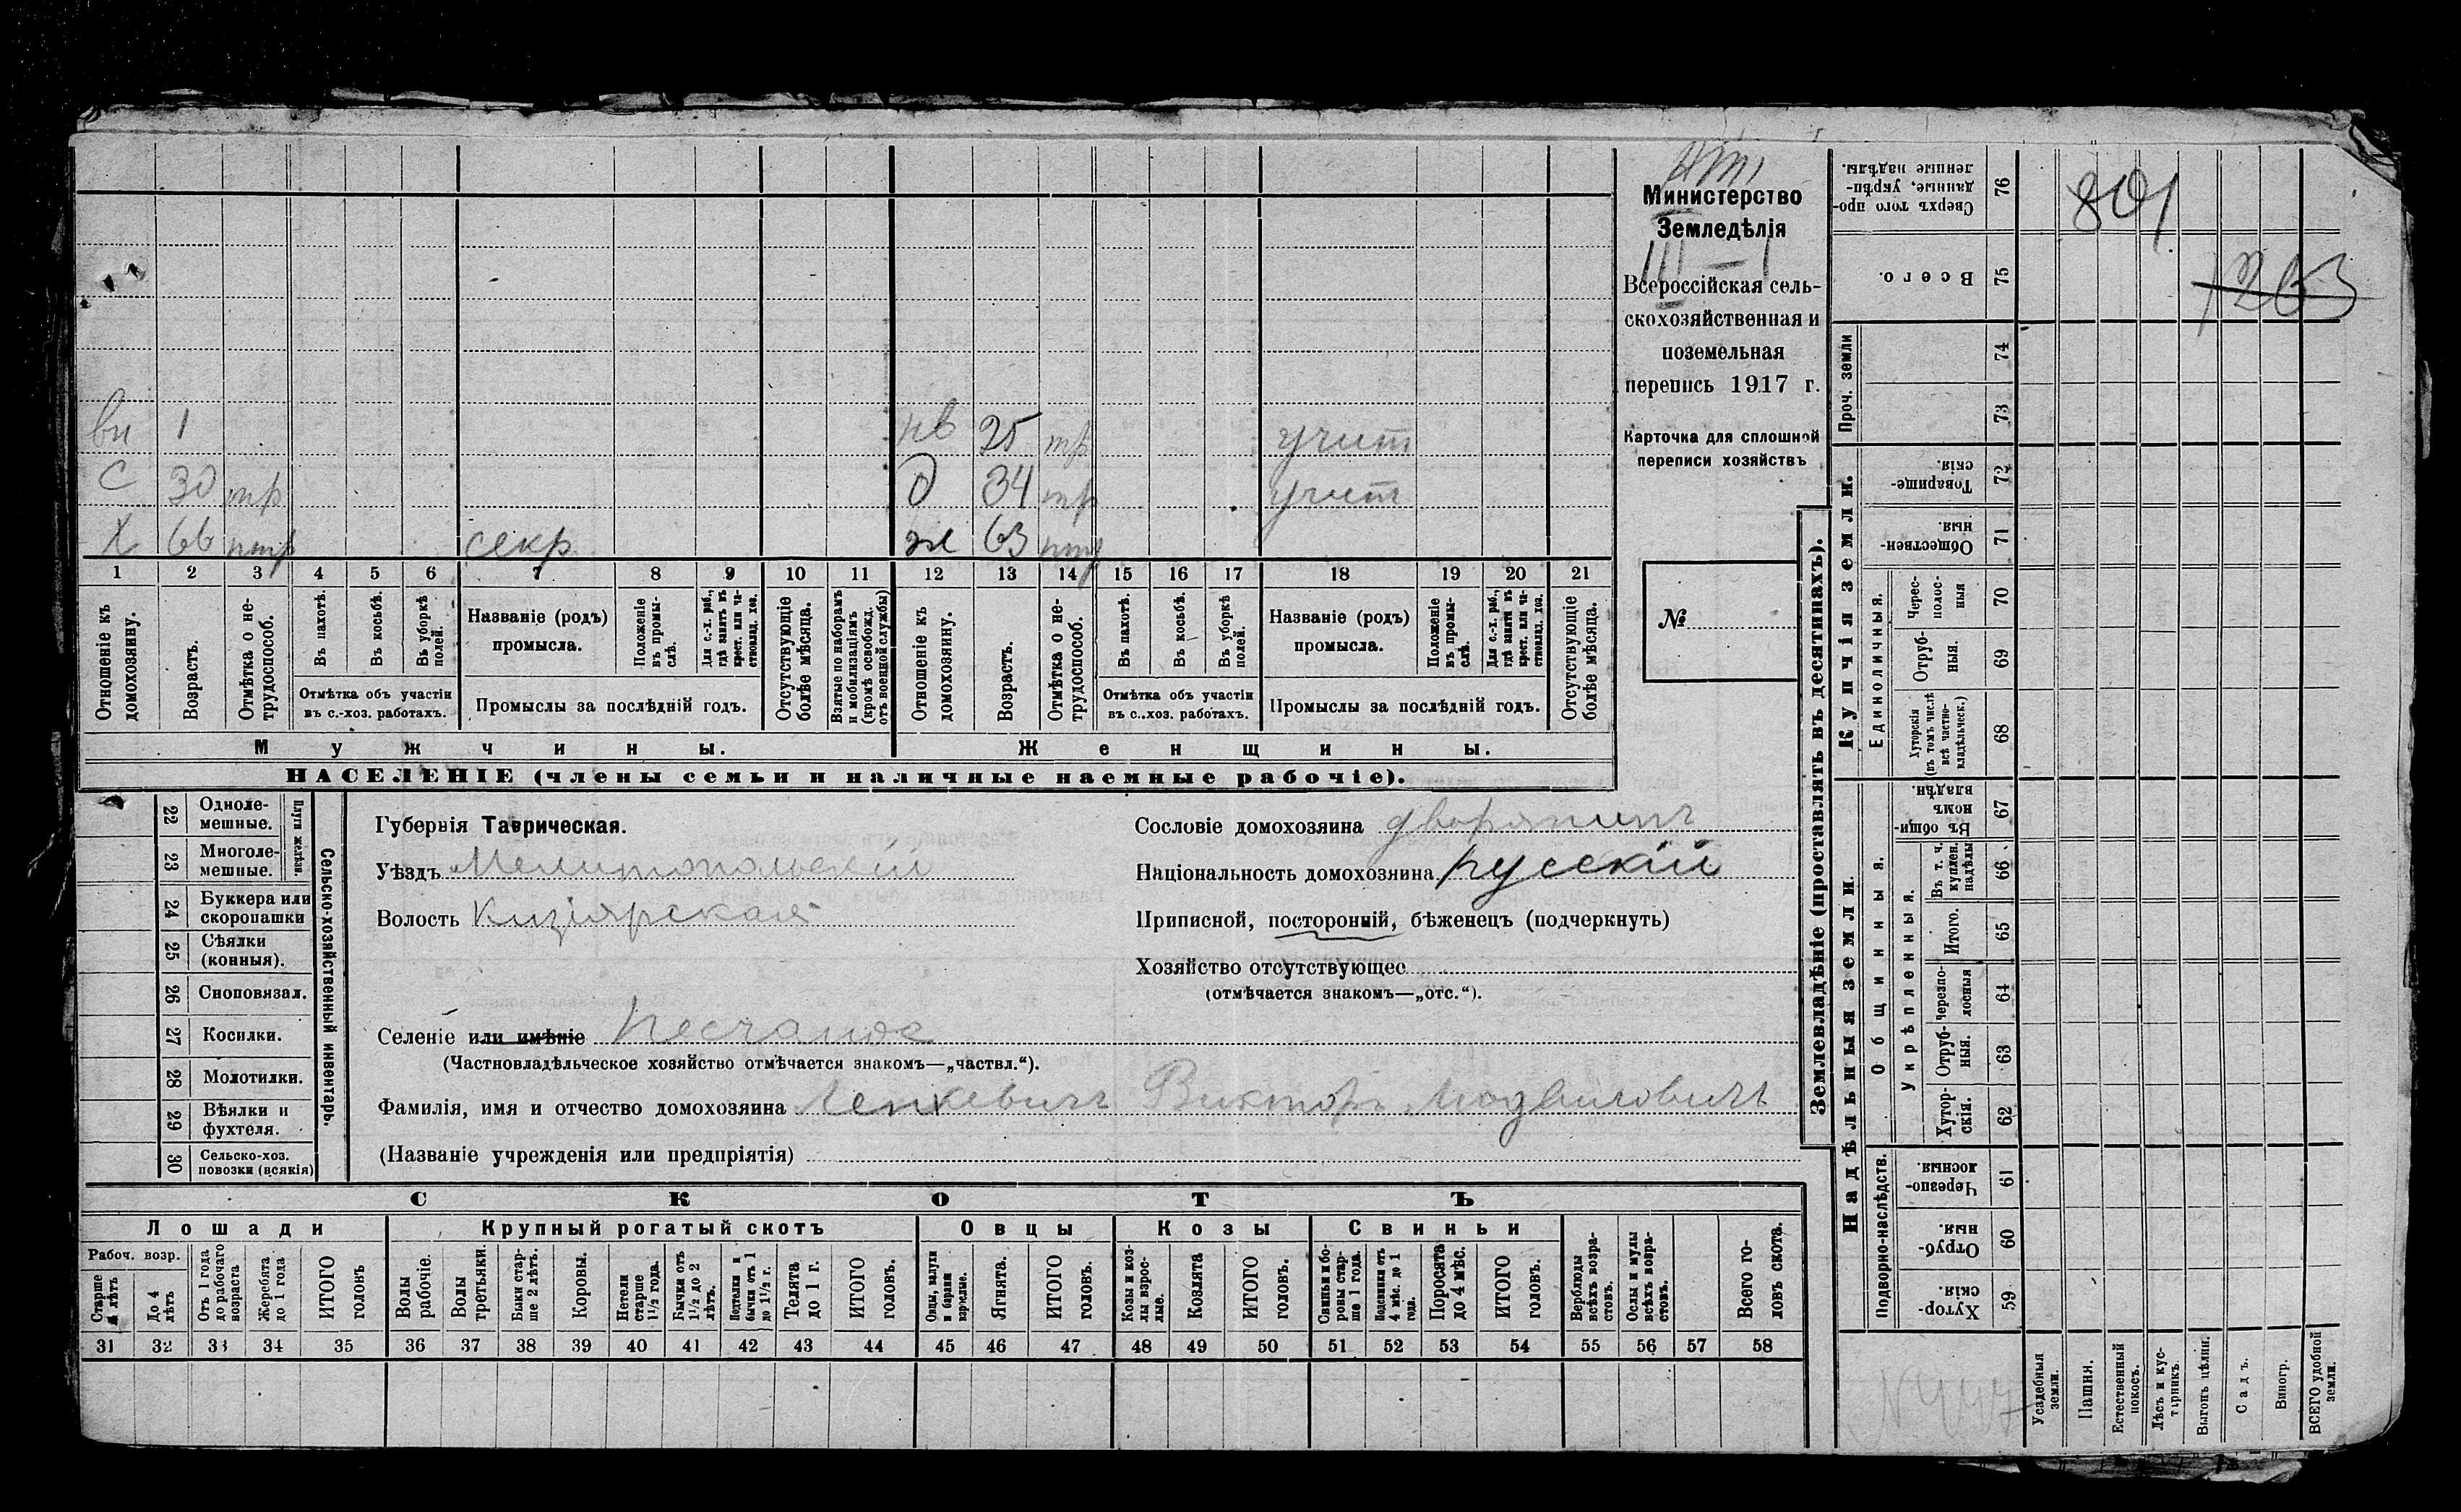 Министерство
Земледѣлія
III – 1
Всероссійская сель-
скохозяйственная и
поземельная
перепись 1917 г.
Карточка для сплошной
переписи хозяйствъ
№
вн 1 нв 25 тр учит
С 30 тр д 34 тр учит
Х 66 нтр секр ж 63 нтр
1 2 3 4 5 6 7 8 9 10 11 12 13 14 15 16 17 18 19 20 21
Отношеніе къ домохозяину.
Возрастъ.
Отмѣтка о не-трудоспособ.
Въ пахотѣ.
Въ косьбѣ.
Въ уборкѣ полей.
Отмѣтка объ участіи
въ с.-хоз. работахъ.
Названіе (родъ)
промысла.
Положеніе въ промы-слѣ.
Для с.-х. раб., гдѣ занятъ въ крест. или ча-стновлад. хоз.
Промыслы за послѣдній годъ.
Отсутствующіе болѣе мѣсяца.
Взятые по наборамъ и мобилизаціямъ (кромѣ освобожд. отъ военной службы)
Отношеніе къ домохозяину.
Возрастъ.
Отмѣтка о не-трудоспособ.
Въ пахотѣ.
Въ косьбѣ.
Въ уборкѣ полей.
Отмѣтка объ участіи
въ с.-хоз. работахъ.
Названіе (родъ)
промысла.
Положеніе въ промы-слѣ.
Для с.-х. раб., гдѣ занятъ въ крест. или ча-стновлад. хоз.
Промыслы за послѣдній годъ.
Отсутствующіе болѣе мѣсяца.
Мужчины. Женщины.
НАСЕЛЕНІЕ (члены семьи и наличные наемные рабочіе).
Сельско-хозяйственный инвентарь.
Плуги желѣзн.
22 Однолемешные.
23 Многолемешные.
24 Буккера или скоропашки
25 Сѣялки (конныя).
26 Сноповязал.
27 Косилки.
28 Молотилки.
29 Вѣялки и фухтеля.
30 Сельско-хоз. повозки (всякія)
Губернія Таврическая.
Уѣздъ Мелитопольскій
Волость Кизіярская
Селеніе или имѣніе Песчаное
(Частновладѣльческое хозяйство отмѣчается знакомъ—„частвл.“).
Сословіе домохозяина дворянинъ
Національность домохозяина русскій
Приписной, посторонній, бѣженецъ (подчеркнуть)
Хозяйство отсутствующее
(отмѣчается знакомъ—„отс.“).
Фамилія, имя и отчество домохозяина Ленкевичъ Викторъ Людвиговичъ
(Названіе учрежденія или предпріятія)
СКОТЪ
Лошади Крупный рогатый скотъ Овцы Козы Свиньи
Рабоч. возр.
Старше 4 лѣтъ
До 4 лѣтъ
Отъ 1 года до рабочаго возраста
Жеребята до 1 года
ИТОГО головъ
Волы рабочіе.
Волы третьяки.
Быки стар-ше 2 лѣтъ.
Коровы.
Нетели старше 1 1/2 года.
Бычки отъ 1 1/2 до 2 лѣтъ.
Подтелки и бычки отъ 1 до 1 1/2 г.
Телята до 1 г.
ИТОГО головъ.
Овцы, валухи и бараны взрослые.
Ягнята.
ИТОГО головъ.
Козы и коз-лы взрос-лые.
Козлята
ИТОГО головъ.
Свиньи и бо-ровы стар-ше 1 года.
Подсвинки отъ 4 мѣс. до 1 года.
Поросята до 4 мѣс.
ИТОГО головъ.
Верблюды всѣхъ возра-стовъ.
Ослы и мулы всѣхъ возра-стовъ.
Всего го-ловъ скота.
31 32 33 34 35 36 37 38 39 40 41 42 43 44 45 46 47 48 49 50 51 52 53 54 55 56 57 58
Землевладѣніе (проставлять въ десятинахъ).
Купчія земли.
Надѣльныя земли.
Проч. земли
Единоличныя.
Общинныя.
Укрѣпленныя.
Подворно-наслѣдств.
Сверхъ того про-данные, укрѣп-ленные надѣлы. 76
Всего. 75
74
73
Товарище-скія. 72
Обществен-ныя. 71
Черес-полос-ныя 70
Отруб-ныя. 69
Хуторскія (въ томъ числѣ всѣ частно-владѣльческ.) 68
Въ общи-номъ владѣн. 67
Въ т. ч. куплен. надѣлы 66
Итого. 65
черезпо-лосныя 64
Отруб-ныя. 63
Хутор-скія. 62
Черезпо-лосныя 61
Отруб-ныя 60
Хутор-скія 59
Усадебныя земли.
Пашня.
Естественный покосъ.
Лѣсъ и кус-тарникъ.
Выгонъ цѣлин.
Садъ.
Виногр.
ВСЕГО удобной земли.
801
1263